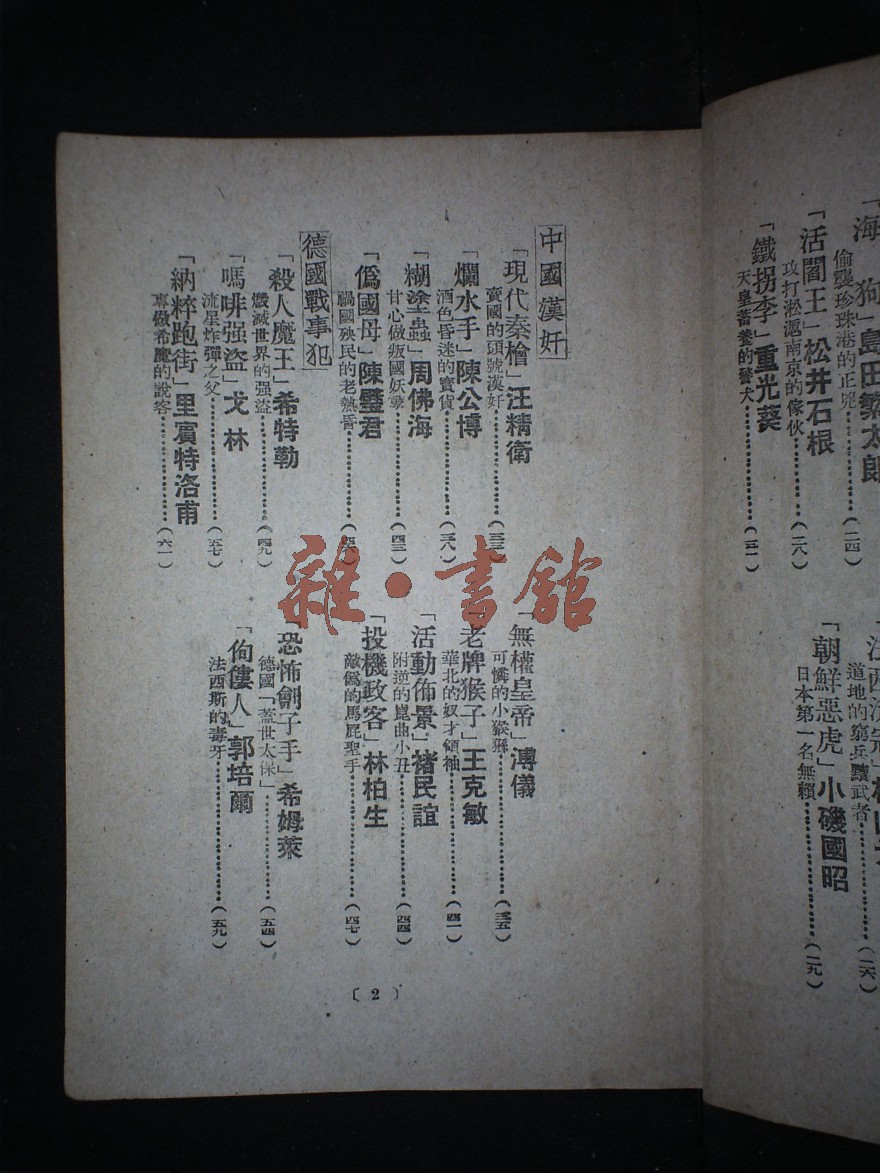 「海　狗」島田繁太郎
偷襲珍珠港的正兇……………（二四）
「活閻王」松井石根
攻打淞滬南京的傢伙……………（二八）
「鐵拐李」重光葵
天皇蓄養的警犬……………（三一）
道地的窮兵黷武者……………（二六）
「朝鮮惡虎」小磯國昭
日本第一名無賴……………（二九）
中國漢奸
「現代秦檜」汪精衛
賣國的頭號漢奸……………（三三）
「無權皇帝」溥儀
可憐的小猴猻……………（三五）
「爛水手」陳公博
酒色昏迷的寶貨……………（三八）
「老牌猴子」王克敏
華北的奴才領袖……………（四一）
「糊塗蟲」周佛海
甘心做叛國妖孽……………（四三）
「活動佈景」褚民誼
附逆的崑曲小丑……………（四四）
「僞國母」陳璧君
禍國殃民的老熱昏……………（四六）
「投機政客」林柏生
敵僞的馬屁聖手……………（四七）
德國戰事犯
「殺人魔王」希特勒
燬滅世界的强盜……………（四九）
「恐怖劊子手」希姆萊
德國「蓋世太保」……………（五四）
「嗎啡强盜」戈林
流星炸彈之父……………（五七）
「佝僂人」郭培爾
法西斯的毒牙……………（五九）
「納粹跑街」里賓特洛甫
專做希魔的說客……………（六一）
〔2〕
雜·書館